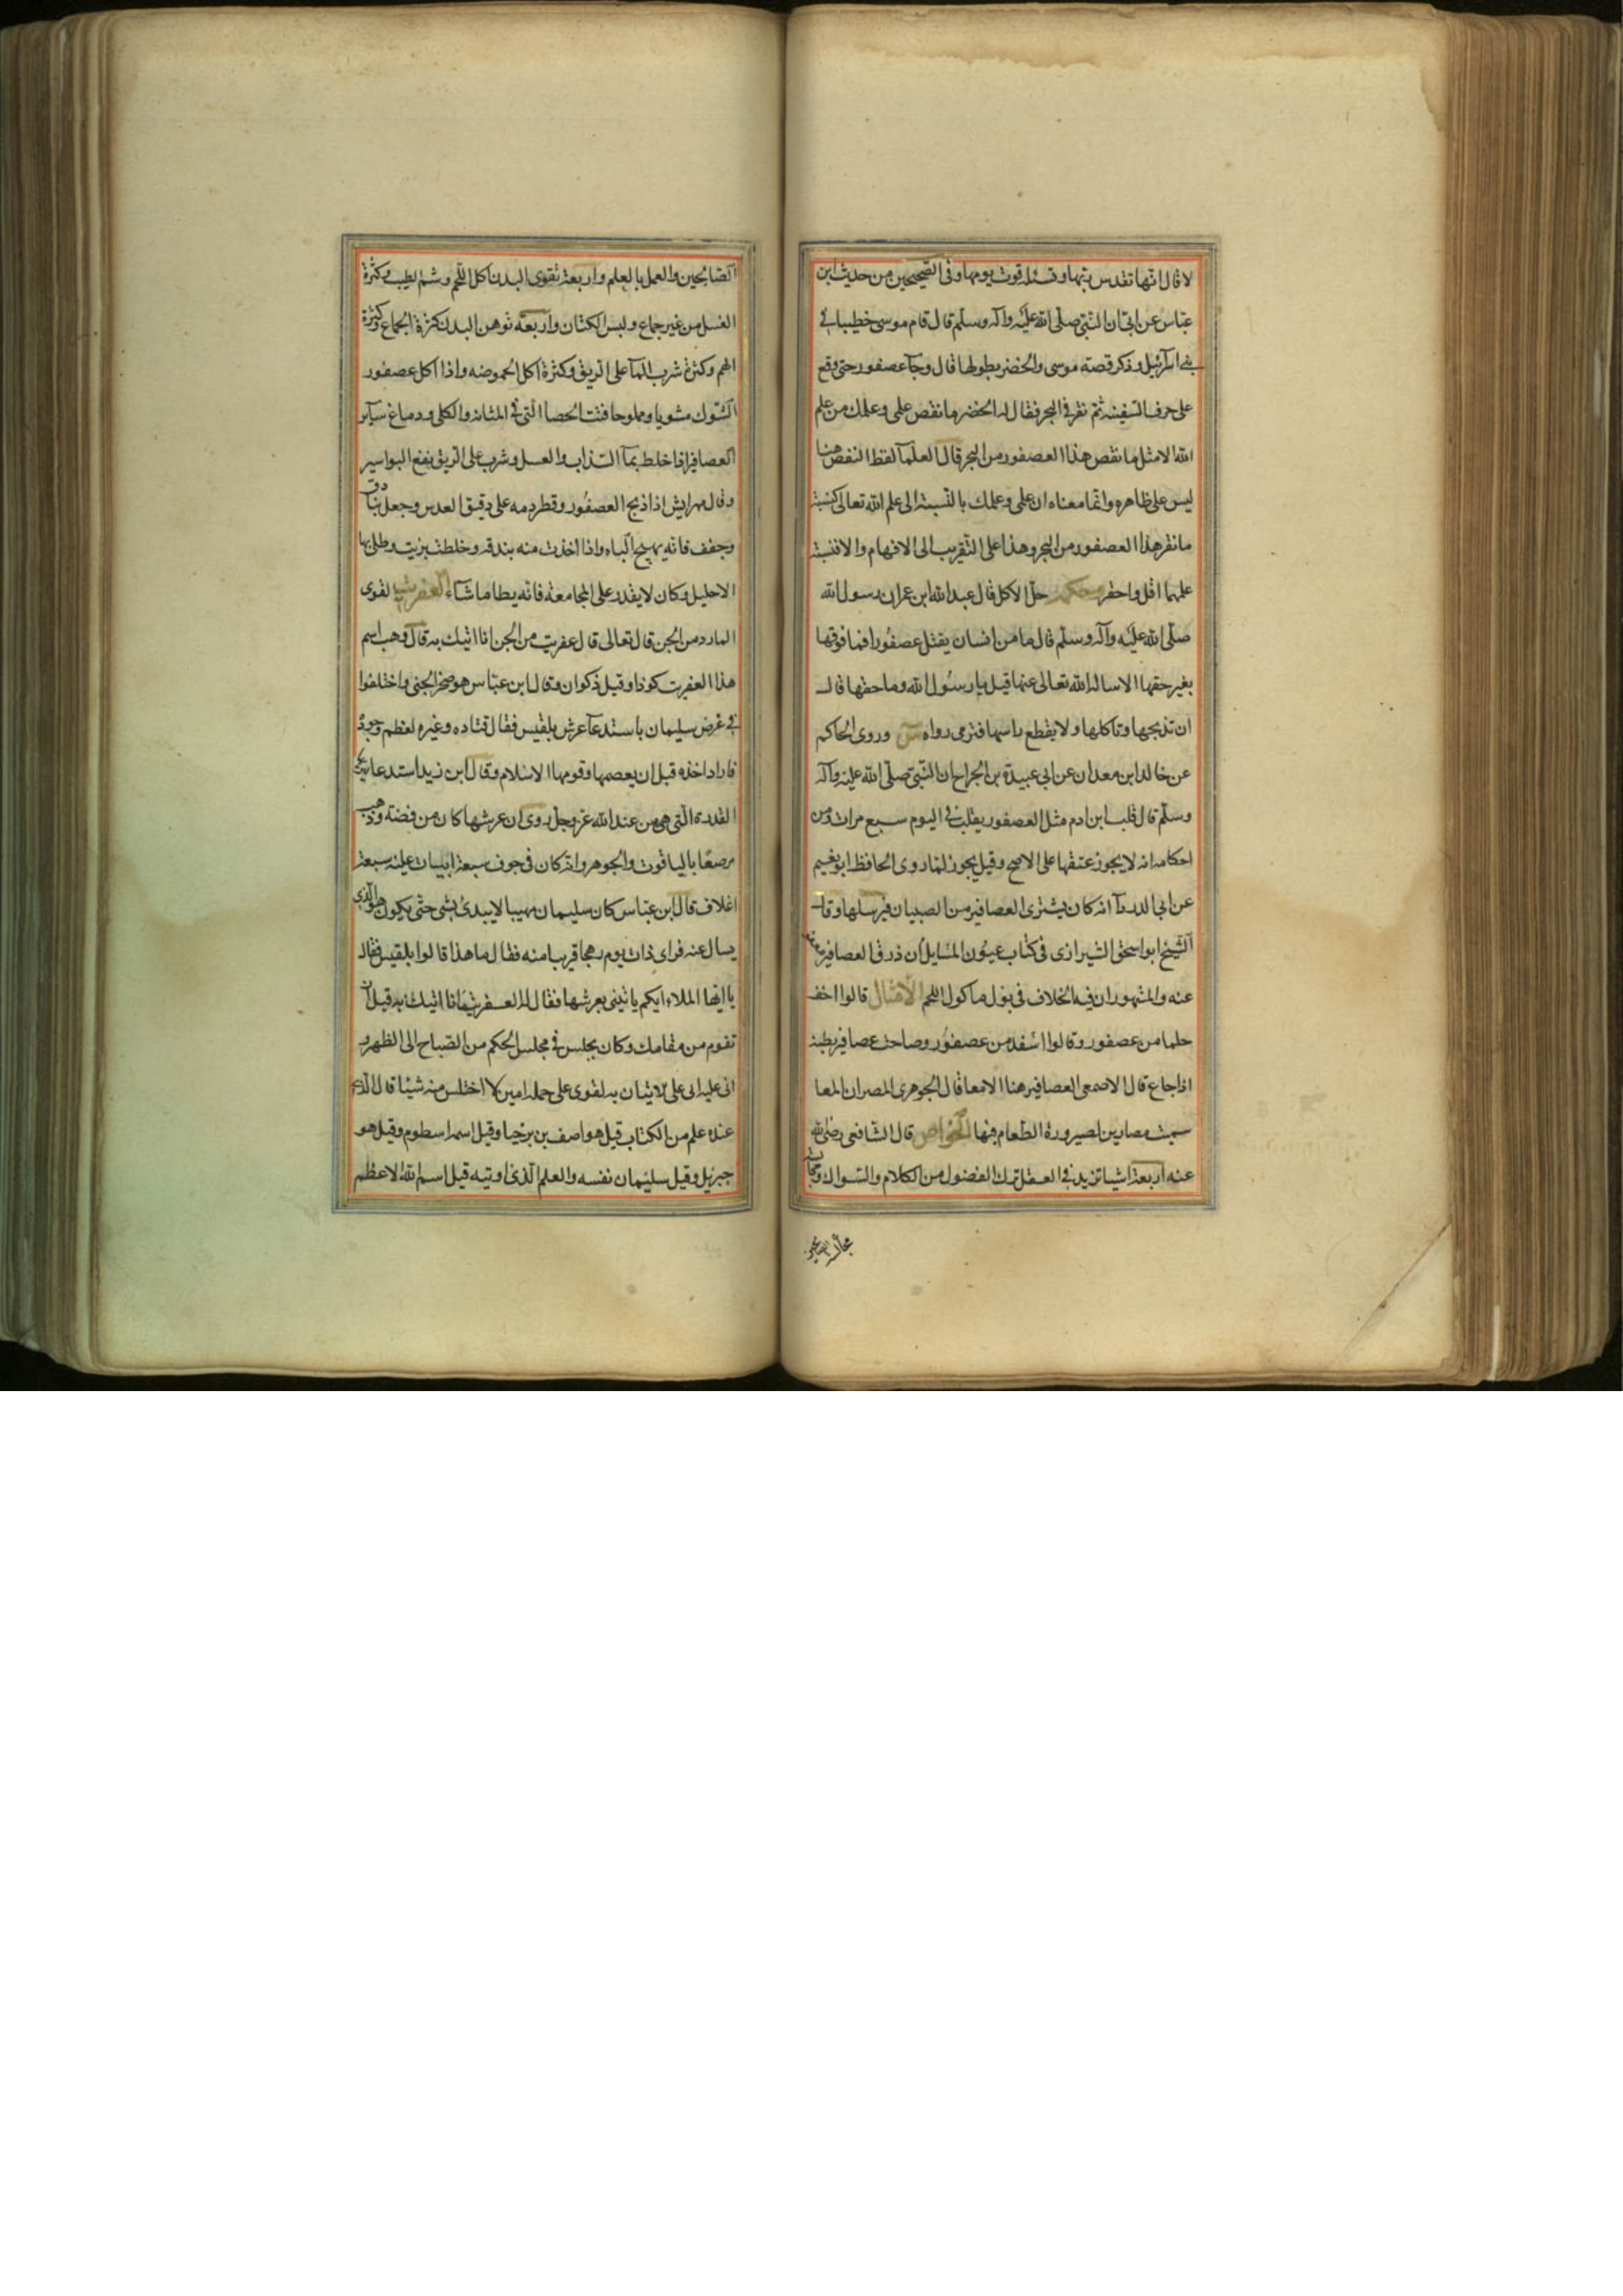 لا قال انها تقدس ربها وتسئله قوت يومها وفى الصحيحين من حديث ابن
عباس عن ابى ان النبى صلى الله عليه واله وسلم قال قام موسى خطيبا فى
بنى اسرئيل وذكر قصة موسى والخضر بطولها قال وجآ عصفور حتى وقع
على حرف السفينه ثم نقر فى البحر فقال له الخضر ما نقص علمى وعلمك من علم
الله الا مثل ما نقص هذا العصفور من البحر قال العلمآ لفظ النقص هنا
ليس على ظاهره وانما معناه ان علمى وعلمك بالنسبة الى علم الله تعالى كنسبة
ما نقر هذا العصفور من البحر وهذا على التقريب الى الافهام والا فنسبة
علمهما اقل واحقر وحكمه حل الاكل قال عبد الله ابن عمر ان رسول الله
صلى الله عليه واله وسلم قال ما من انسان يقتل عصفورا فما فوقها
بغير حقها الا ساله الله تعالى عنها قيل يا رسول الله وما حقها قال
ان تذبحها وتاكلها ولا يقطع راسها فترمى رواه س وروى الحاكم
عن خالد ابن معدان عن ابى عبيدة بن الجراح ان النبى صلى الله عليه واله
وسلم قال قلب ابن ادم مثل العصفور يقلب فى اليوم سبع مرات ومن
احكامه انه لا يجوز عتقها على الاصح وقيل يجوز لما روى الحافظ ابو نعيم
عن ابى الدردآ انه كان يشترى العصافير من الصبيان فيرسلها وقال
الشيخ ابو اسحق الشيرازى فى كتاب عيون المسايل ان ذرق العصافير معفو
عنه والمشهور ان فيه الخلاف فى بول ماكول اللحم الامثال قالوا اخف
حلما من عصفور وقالوا اسفد من عصفور وصاحت عصافير بطنه
اذا جاع قال الاصمعى العصافير هنا الامعا قال الجوهرى المصران المعا
سميت مصارين لصيرورة الطعام فيها الخواص قال الشافعى رضى الله
عنه اربعة اشيا تزيد فى العقل ترك الفضول من الكلام والسواك ومجالسة
الصالحين والعمل بالعلم واربعة تقوى البدن اكل اللحم وشم لطيب وكثرة
الغسل من غير جماع ولبس الكتان واربعه توهن البدن كثرة الجماع وكثرة
الهم وكثرة شرب المآ على الريق وكثرة اكل الحموضه واذا اكل عصفور
الشوك مشويا ومملوحا فتت الحصا التى فى المثانه والكلى ودماغ سآير
العصافير اذا خلط بمآ السذاب والعسل وشرب على الريق ينفع البواسير
وقال مهراريش اذا ذبح العصفور وقطر دمه على دقيق العدس وجعل بنادق
وجفف فانه يهيج الباه واذا اخذت منه بندقه وخلطت بزيت وطلى بها
الاحليل وكان لا يقدر على المجامعة فانه يطا ما شآء العفريت القوى
المارد من الجن قال تعالى قال عفريت من الجن انا اتيك به قال وهب اسم
هذا العفرت كوذا وقيل ذكوان وقال ابن عباس هو صخر الجنى واختلفوا
فى غرض سليمان باستدعآ عرش بلقيس فقال قتاده وغيره لعظم وجوده
فاراد اخذه قبل ان يعصمها وقومها الاسلام وقال ابن زيد استدعا
القدرة التى هى من عند الله عز وجل روى ان عرشها كان من فضة وذهب
مرصعا بالياقوت والجوهر وانه كان فى جوف سبعة ابيات عليه سبعة
اغلاف قال ابن عباس كان سليمان مهيبا لا يبدئ بشى حتى يكون هو الذى
يسال عنه فراى ذات يوم رهجا قريبا منه فقال ما هذا قالوا بلقيس فقال
يا ايها الملاء ايكم ياتينى بعرشها فقال له العفريت انا اتيك به قبل ان
تقوم من مقامك وكان يجلس فى مجلس الحكم من الصباح الى الظهر و
انى عليه اى على الاتيان به لقوى على حمله امين لا اختلس منه شيئا قال الذى
عنده علم من الكتاب قيل هو اصف بن برخيا وقيل اسمه اسطوم وقيل هو
جبريل وقيل سليمان نفسه والعلم الذى اوتيه قيل اسم الله الاعظم